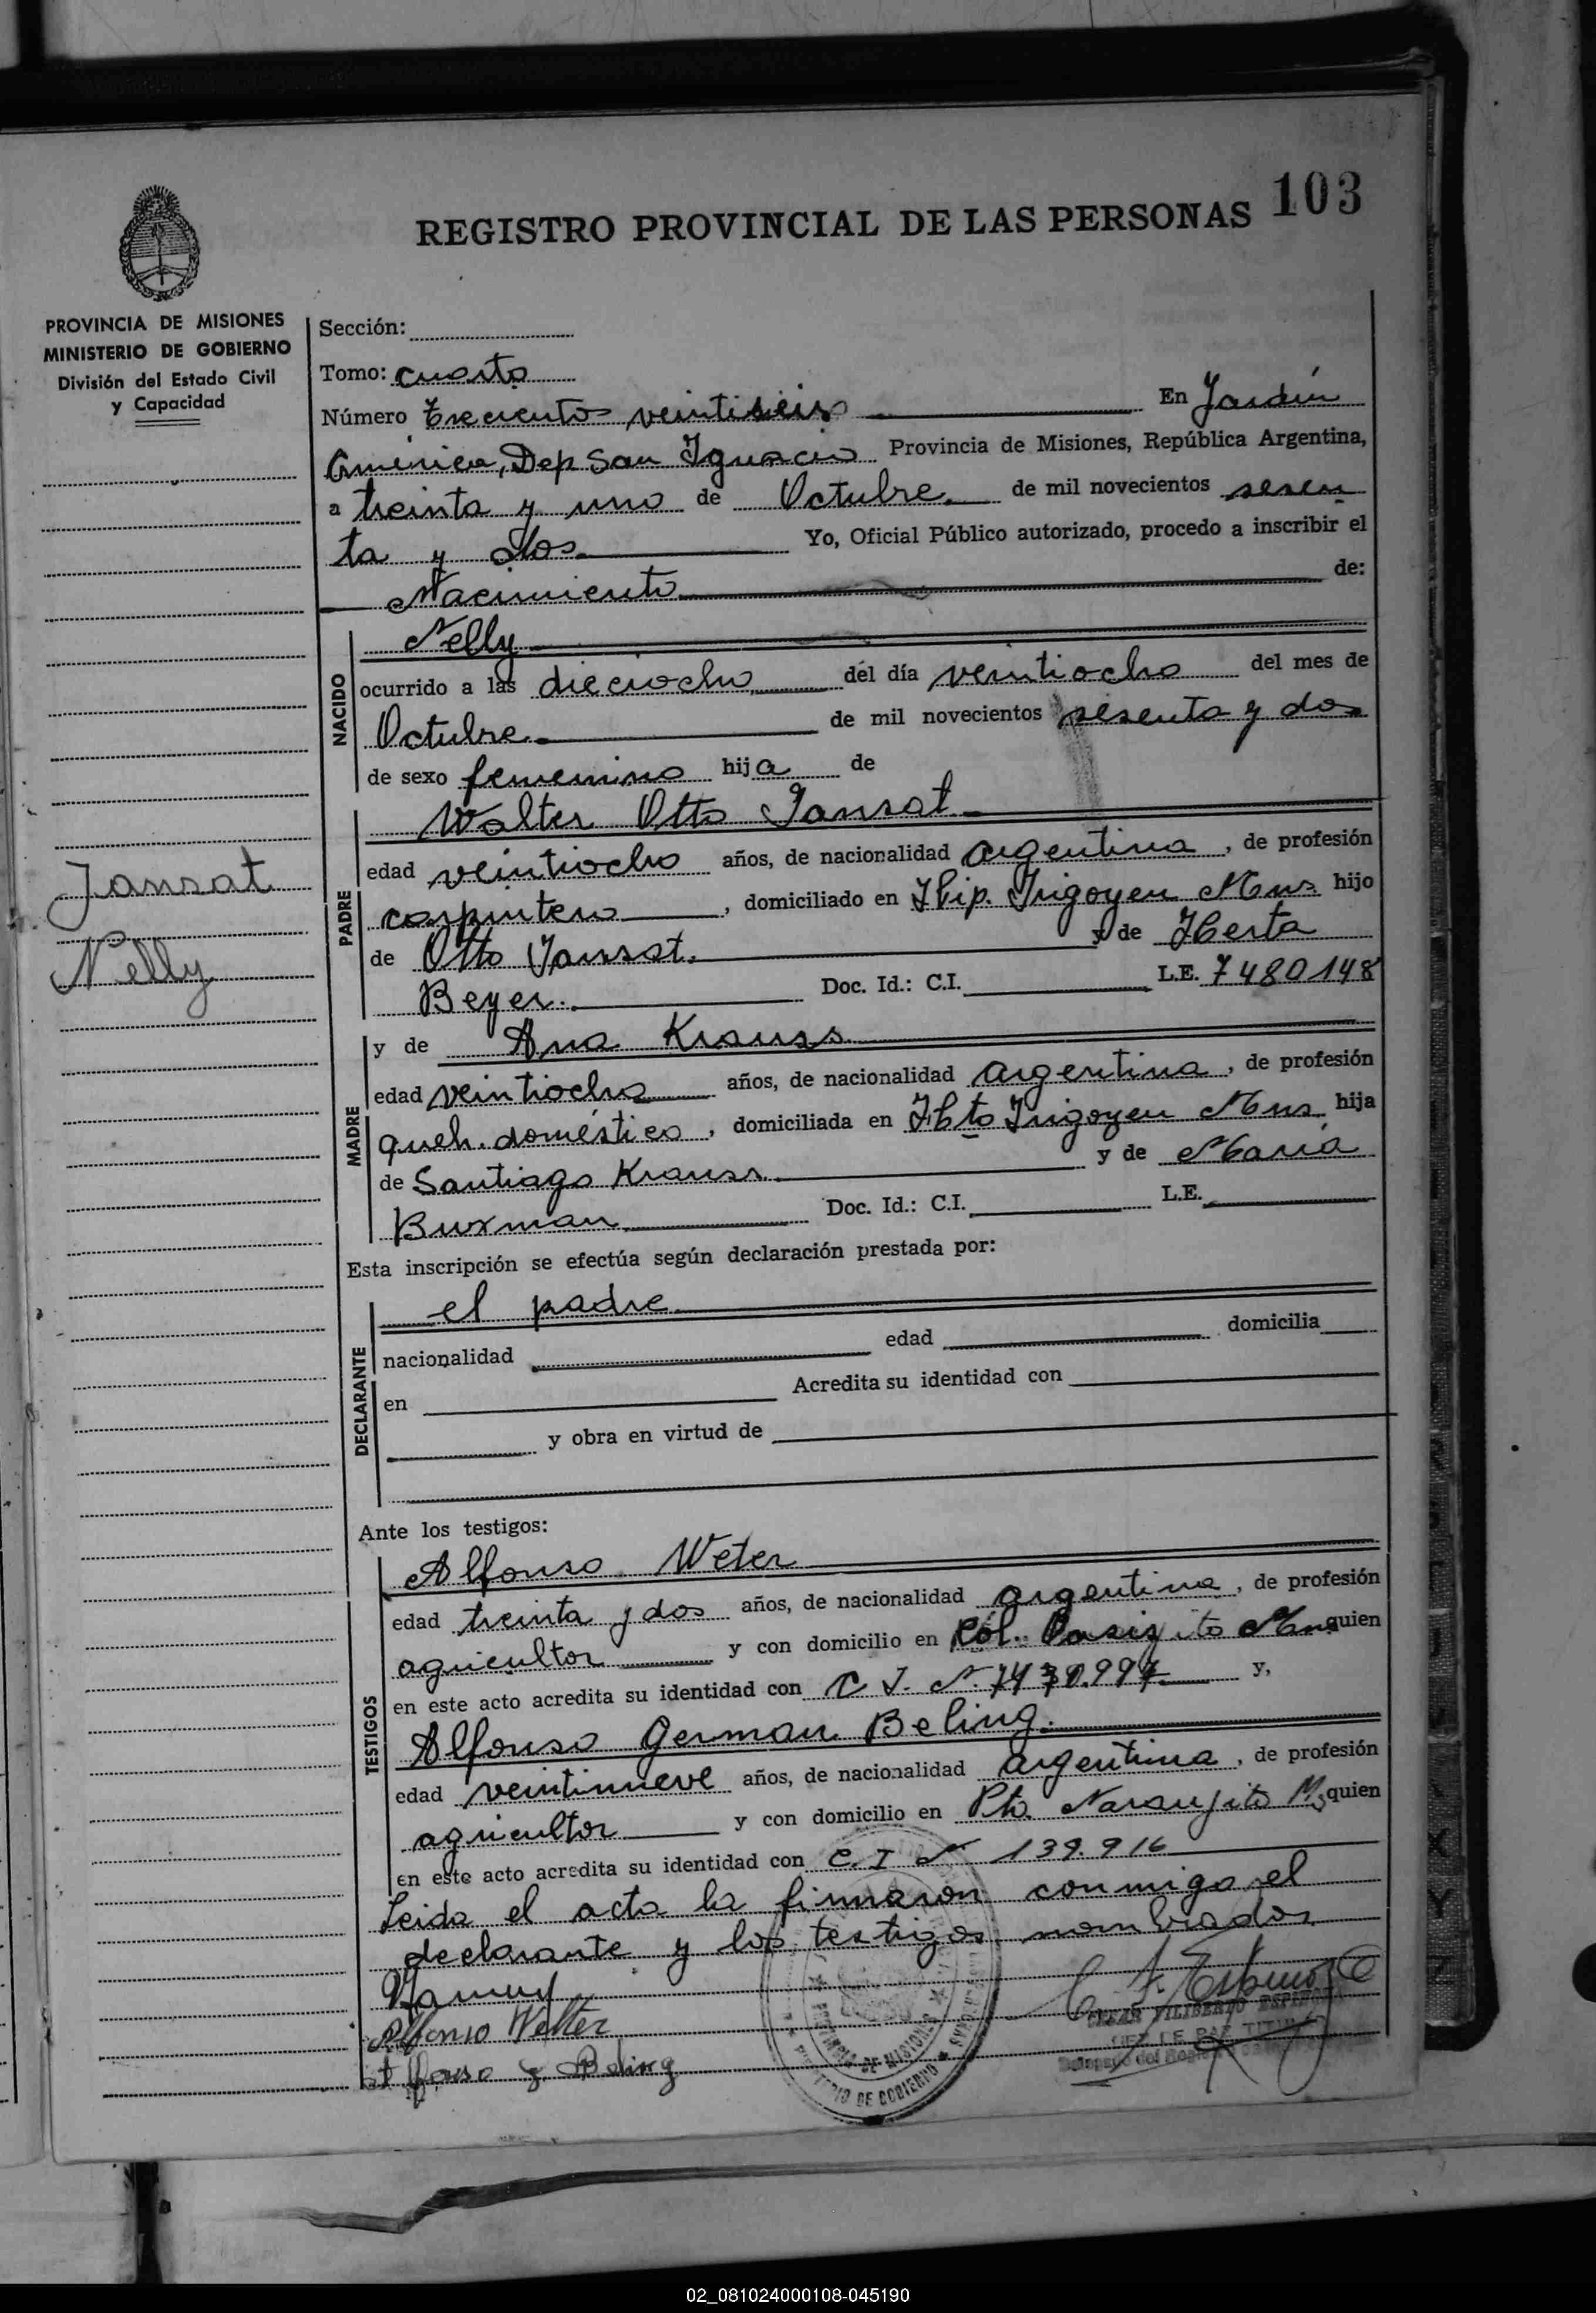 103
REGISTRO PROVINCIAL DE LAS PERSONAS
PROVINCIA DE MISIONES
MINISTERIO DE GOBIERNO
División del Estado Civil
y Capacidad
Jansat
Nelly
Sección:
Tomo: cuarto
Número Trecientos veintiseis En Jardín
América, Dep San Ignacio Provincia de Misiones, República Argentina,
a treinta y uno de Octubre. de mil novecientos sesen
ta y dos Yo, Oficial Público autorizado, procedo a inscribir el
Nacimiento de:
NACIDO
Nelly
ocurrido a las dieciocho del día veintiocho del mes de
Octubre. de mil novecientos sesenta y dos
de sexo femenino hija de
PADRE
Walter Otto Jansat
edad veintiocho años, de nacionalidad argentina, de profesión
carpintero, domiciliado en Hip. Irigoyen Mns hijo
de Otto Jansat. y de Herta
Beyer. Doc. Id.: C.I. L.E. 7480148
MADRE
y de Ana Krauss
edad veintiocho años, de nacionalidad argentina, de profesión
queh. doméstico, domiciliada en Hto Irigoyen Mns hija
de Santiago Krauss y de María
Buxman Doc. Id.: C.I. L.E.
Esta inscripción se efectúa según declaración prestada por:
DECLARANTE
el padre
nacionalidad edad domicilia
en Acredita su identidad con
y obra en virtud de
Ante los testigos:
TESTIGOS
Alfonso Weter
edad treinta y dos años, de nacionalidad argentina, de profesión
agricultor y con domicilio en Col. Oasisito Mns quien
en este acto acredita su identidad con C I. N. y,
Alfonso German Beling.
edad veintinueve años, de nacionalidad argentina, de profesión
agricultor y con domicilio en Pto. Naranjito M, quien
en este acto acredita su identidad con C. I N 139.916
Leida el acta la firmaron conmigo el
declarante y los testigos nombrados
Alfonso Welter
Alfonso g. Beling
C. F. Espinoza
CESAR FILIBERTO ESPINOZA
JUEZ DE PAZ TITULAR
PROVINCIA DE MISIONES
MINISTERIO DE GOBIERNO
02_081024000108-045190